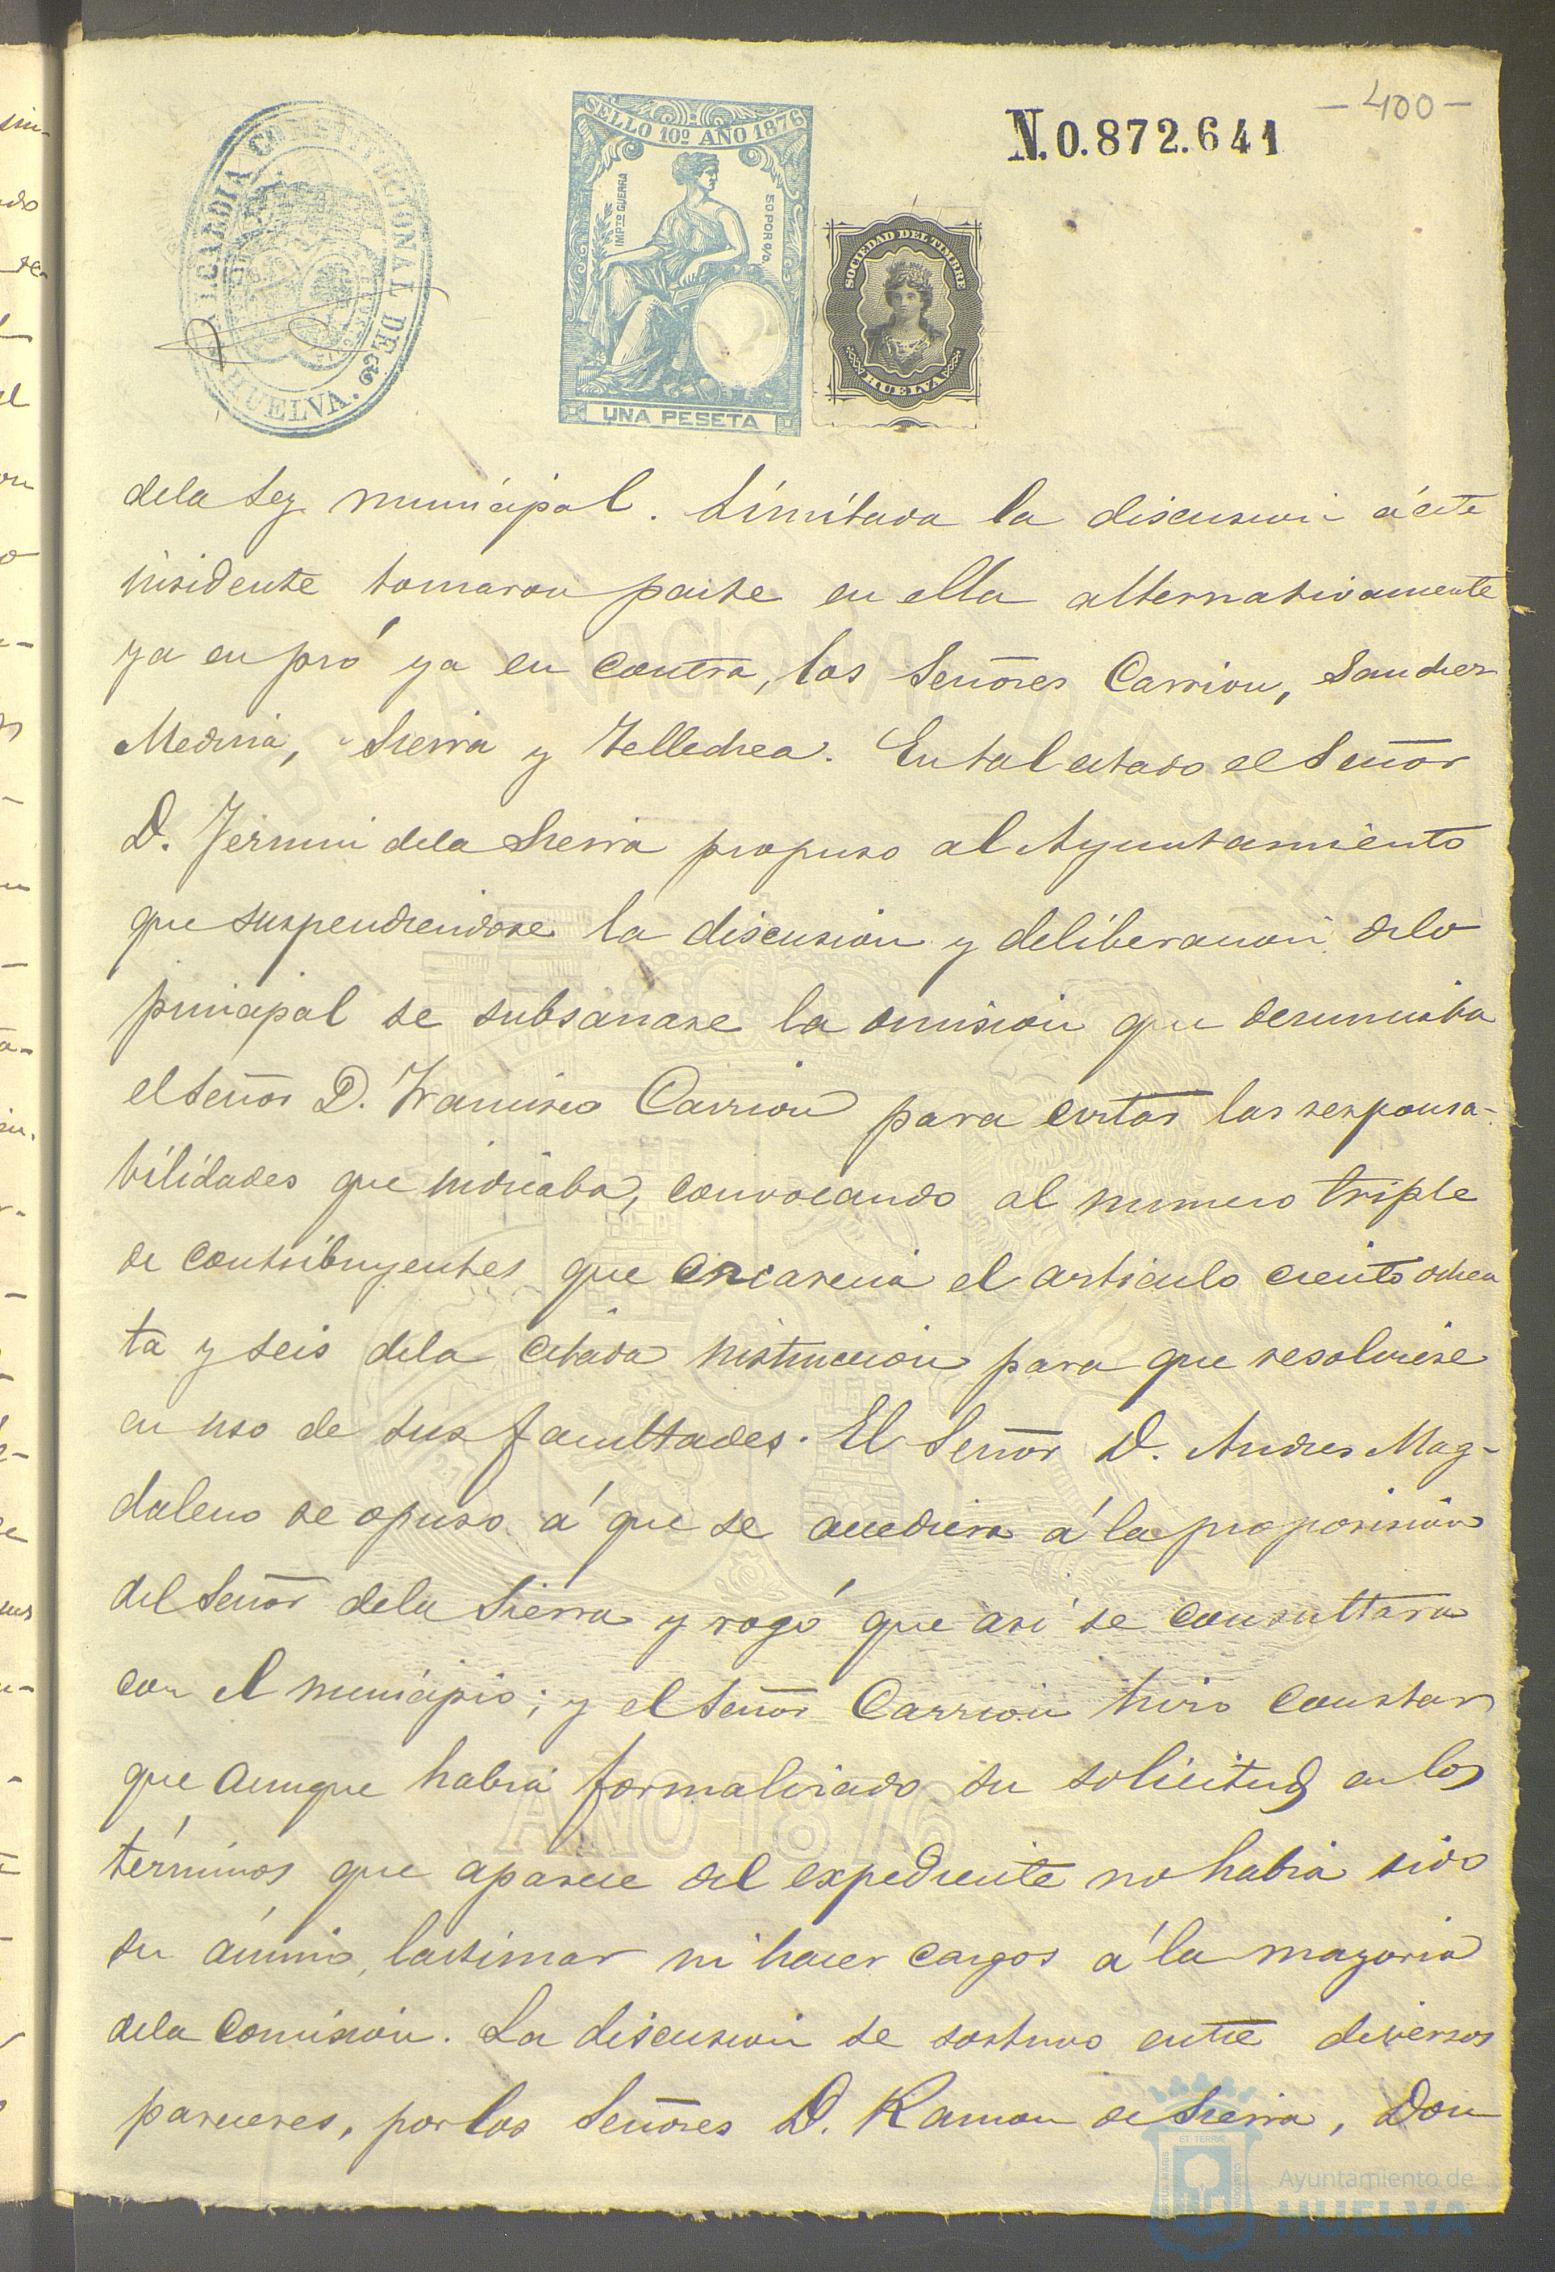 -400-
ALCALDIA CONSTITUCIONAL DE HUELVA.
SELLO 10º AÑO 1876
IMPTO GUERRA
50 POR 0/0
UNA PESETA
SOCIEDAD DEL TIMBRE
HUELVA
N.0.872.641
dela Ley municipal. Limitada la discusion á este
insidente tomaron parte en ella alternativamente
ya en pró ya en contra, los Señores Carrion, Sanchez
Medina, Sierra y Tellechea. En tal estado el Señor
D. Fermin dela Sierra propuso al Ayuntamiento
que suspendiendose la discusion y deliberacion delo
principal se subsanase la omision que denunciaba
el Señor D. Francisco Carrion para evitar las responsa-
bilidades que indicaba, convocando al numero triple
de contribuyentes que encarecia el articulo ciento ochen
ta y seis dela citada instruccion para que resolviese
en uso de sus facultades. El Señor D. Andres Mag-
daleno se opuso á que se accediera á la proposision
del Señor dela Sierra y rogó que asi se consultara
con el municipio; y el Señor Carrion hizo constar
que aunque habia formalizado su solicitud en los
términos que aparece del expediente no habia sido
su ánimo, lastimar ni hacer cargos á la mayoria
dela Comision. La discusion se sostuvo entre diversos
pareceres, por los Señores D. Ramon de Sierra, Don
AÑO 1876
Ayuntamiento de
HUELVA